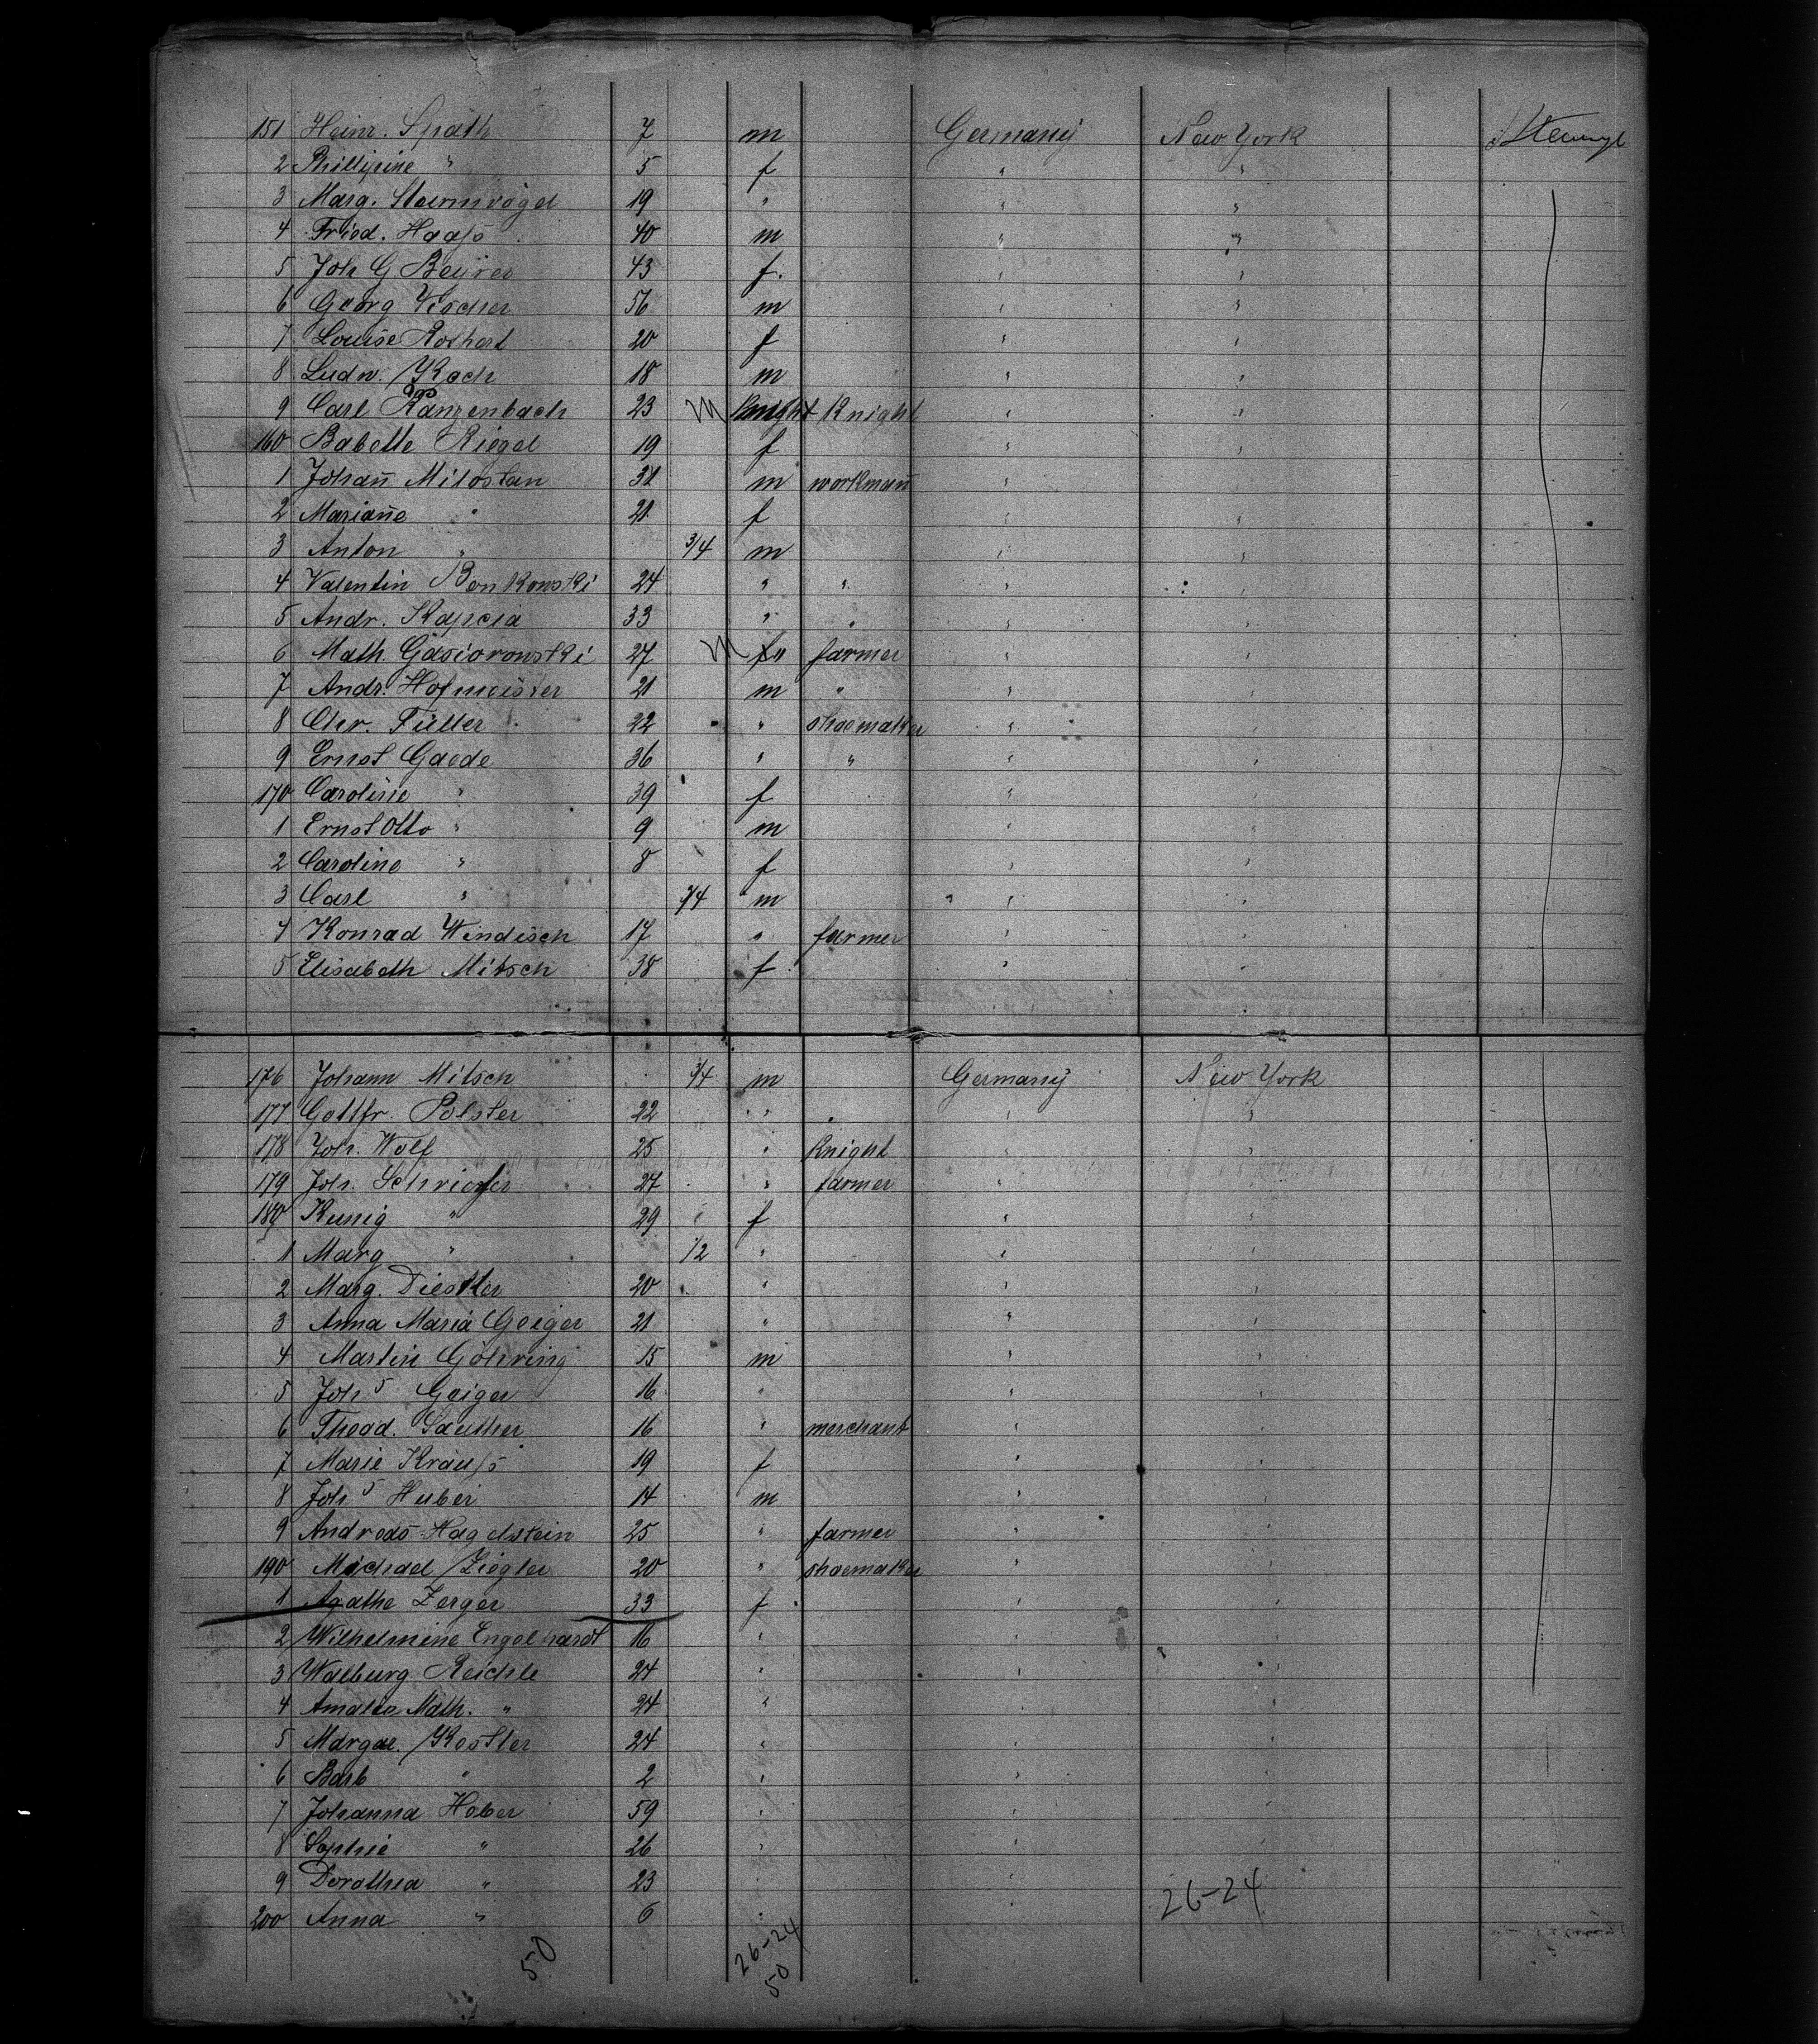 151 Heinr. Späth 7 m Germany New York
2 Phillipine " 5 f " "
3 Marg. Sturmvogel 19 " " "
4 Fried. Haass 40 m " "
5 Joh G. Beyrer 43 f. " "
6 Georg Vischer 56 m " "
7 Louise Rothert 20 f " "
8 Ludw. Koch 18 m " "
9 Carl Ranzenbach 23 M Knight Knight " "
160 Babette Riegel 19 f " "
1 Johan̄ Milostan 31 m workman̄ " "
2 Marian̄e " 21 f " "
3 Anton " 3/4 m " "
4 Valentin Bonkowski 24 " " " "
5 Andr. Kapcia 33 " " " "
6 Math. Gasiorowski 27 M f " farmer " "
7 Andr. Hofmeister 21 m " " "
8 Chr. Füller 22 " shoemaker " "
9 Ernst Gaede 36 " " " "
170 Caroline " 39 f " "
1 Ernst Otto " 9 m " "
2 Caroline " 8 f " "
3 Carl " 3/4 m " "
4 Konrad Windisch 17 " farmer " "
5 Elisabeth Mitsch 38 f " "
176 Johann Mitsch 3/4 m Germany New York
177 Gottfr. Polster 22 " " "
178 Joh. Wolf 25 " Knight " "
179 Joh. Schriefer 27 " farmer " "
180 Kunig " 29 f " "
1 Marg " 1/2 " " "
2 Marg. Diestler 20 " " "
3 Anna Maria Geiger 21 " " "
4 Martin Göhring 15 m " "
5 Johs Geiger 16 " " "
6 Theod. Sauther 16 " merchant " "
7 Marie Krauss 19 f " "
8 Johs Huber 14 m " "
9 Andreas Hagelstein 25 " farmer " "
190 Michael Ziegler 20 " shoemaker " "
1 Agathe Zerger 33 f " "
2 Wilhelmine Engelhardt 16 " " "
3 Walburg Reichle 24 " " "
4 Amalia Math. " 24 " " "
5 Margar. Kostler 24 " " "
6 Barb " 2 " " "
7 Johanna Haber 59 " " "
8 Sophie " 26 " " "
9 Dorothea " 23 " "
200 Anna " 6 " "
26-24
50 26-24
50